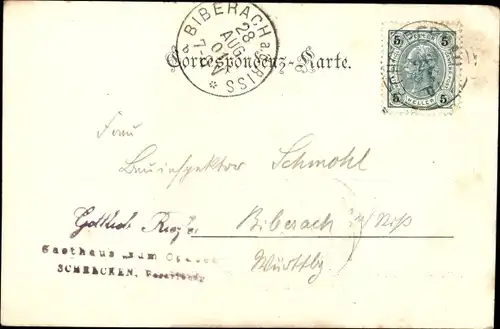 BIBERACH a/RISS
28
AUG
Correspondenz-Karte.
5 5
HELLER
5 5
Frau
Bauinspektor Schmohl
Gottlieb
Biberach a/ Riß
Württbg.
Gasthaus zum
SCHRECKEN,